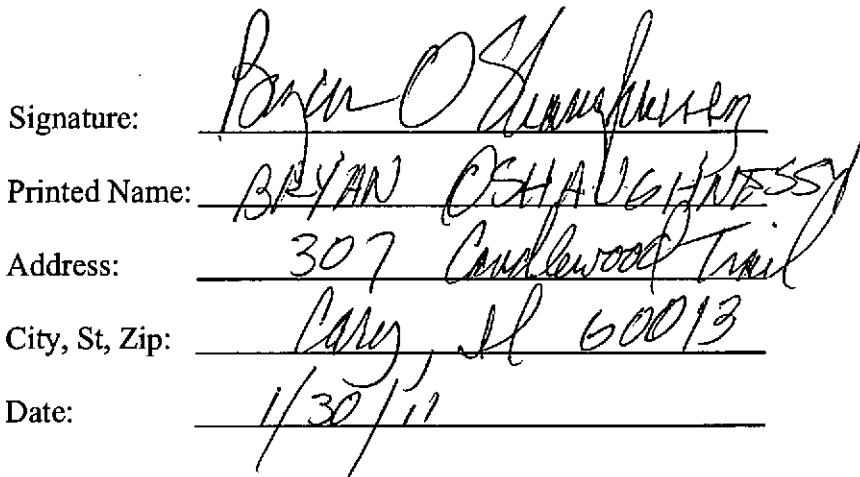 Signature: Bryan OShaughnessy
Printed Name: BRYAN OSHAUGHNESSY
Address: 307 Candlewood Trail
City, St, Zip: Cary, Il 60013
Date: 1/30/11